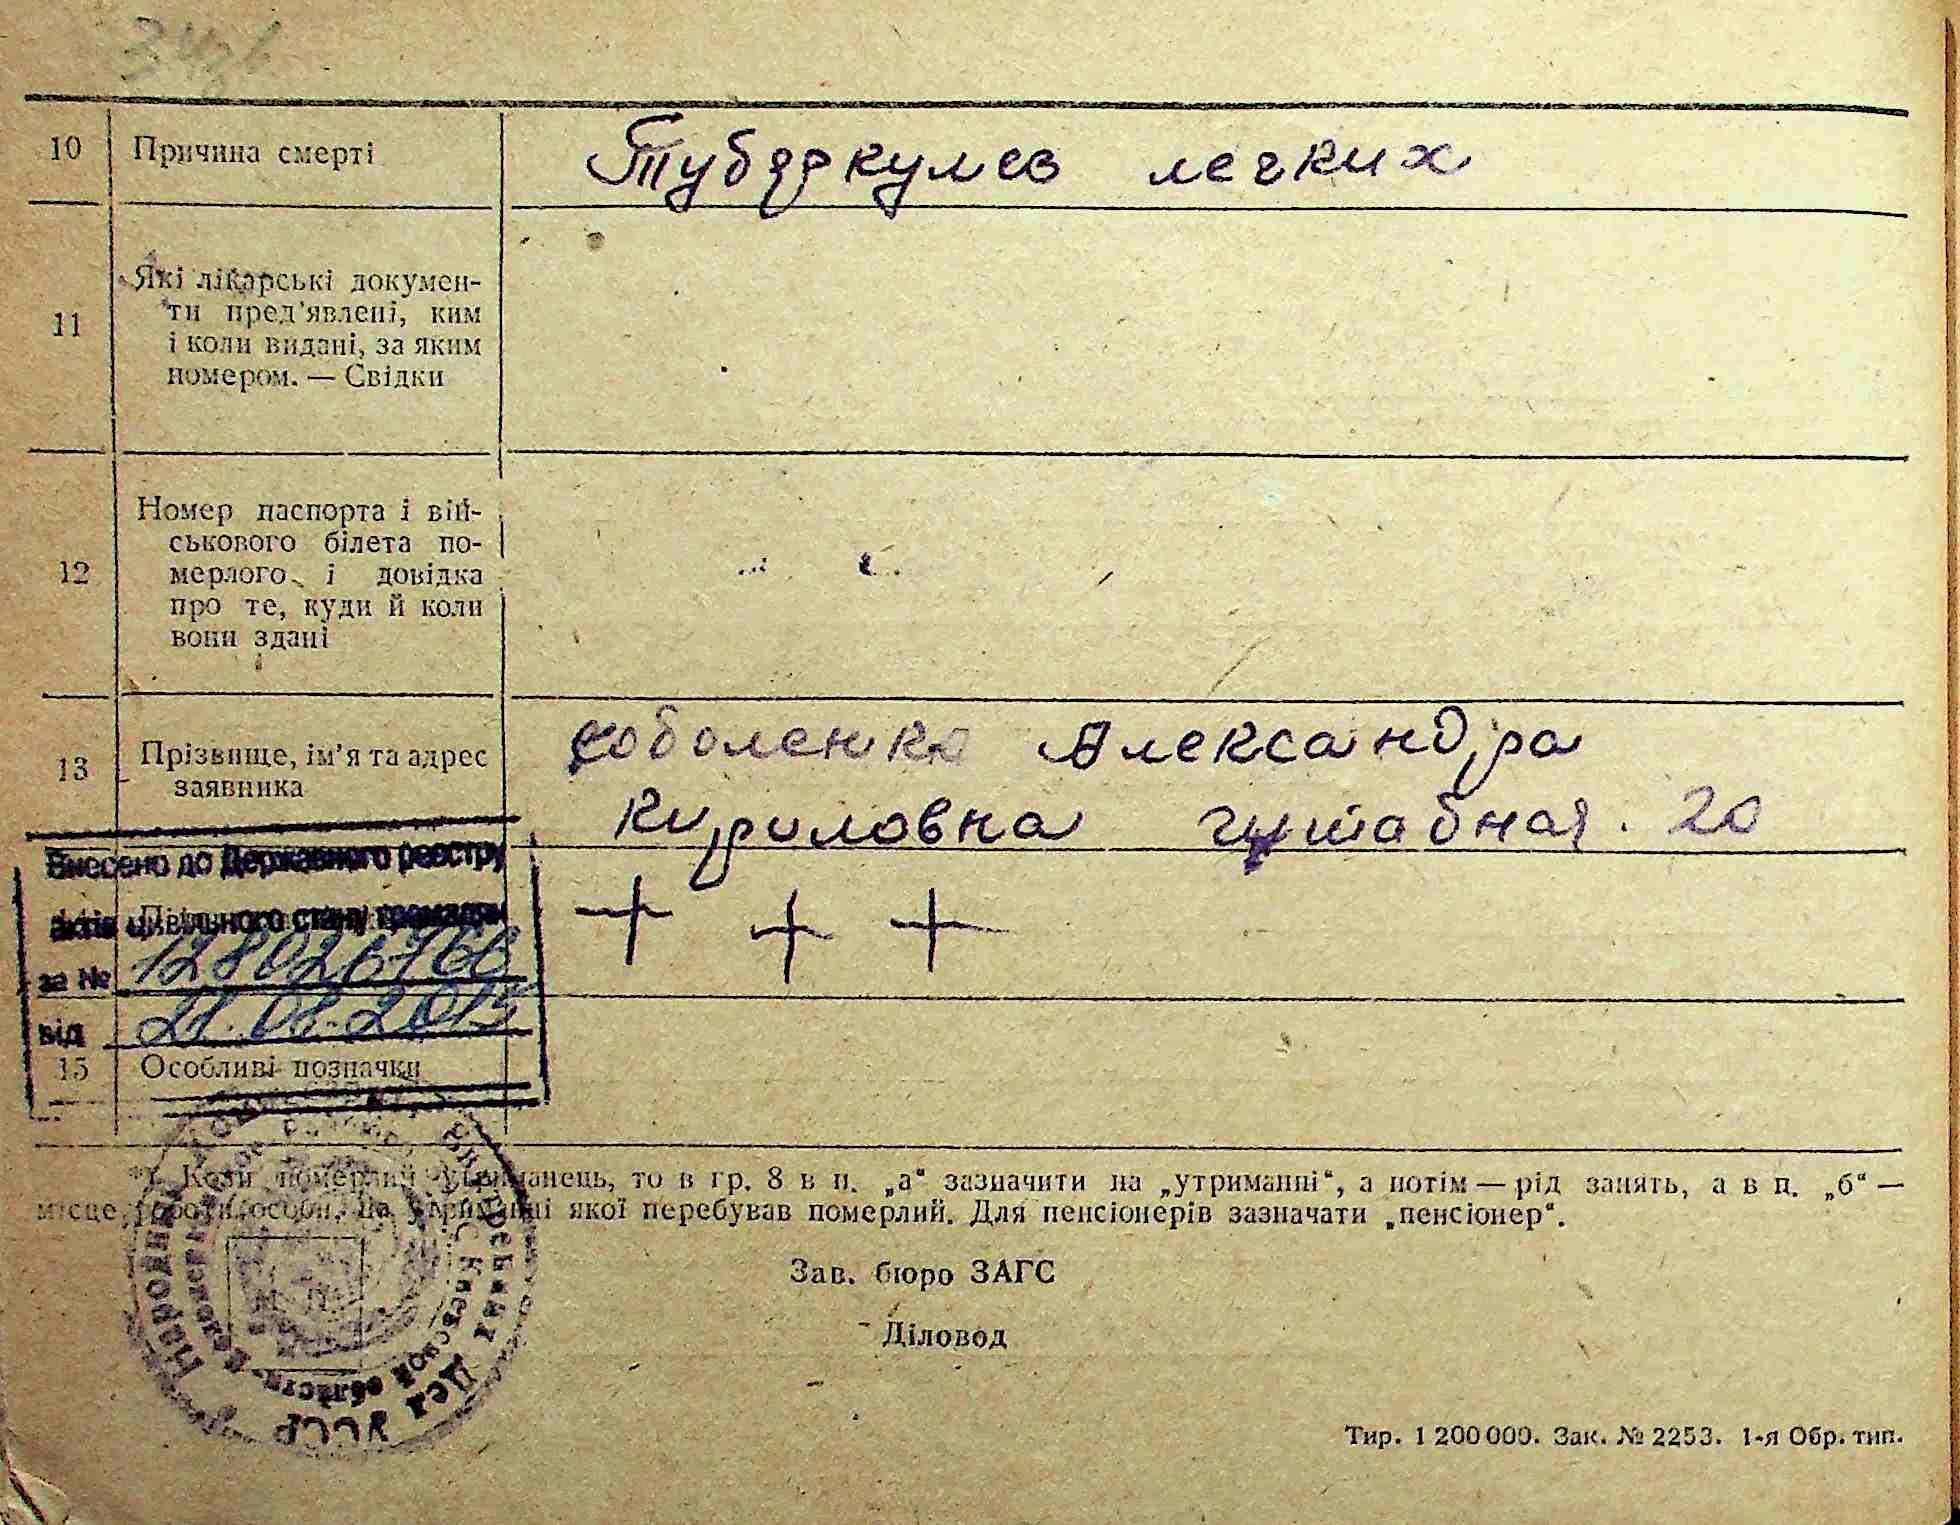 10 Причина смерті Тубяркулев легких
11 Які лікарські докумен-
ти пред'явлені, ким
і коли видані, за яким
номером. — Свідки
12 Номер паспорта і вій-
ськового білета по-
мерлого і довідка
про те, куди й коли
вони здані
13 Прізвище, ім'я та адрес
заявника
Соболенко Александра
Кириловна 20
Внесено до Державного реєстру
актів цивільного стану громадян
за №
від 21.01.2015
15 Особливі позначки
*) Коли померлий утриманець, то в гр. 8 в п. „а“ зазначити на „утриманні“, а потім — рід занять, а в п. „б“ —
місце роботи особи, на утриманні якої перебував померлий. Для пенсіонерів зазначати „пенсіонер“.
Зав. бюро ЗАГС
Діловод
Народный Внутренних Дел УССР
Киевской области
Тир. 1 200 000. Зак. № 2253. 1-я Обр. тип.